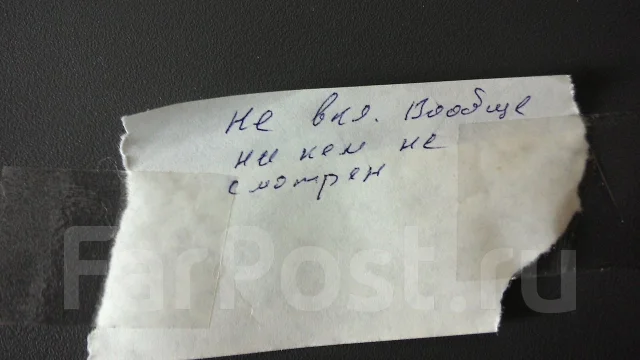 Не вкл. Вообще
ни кем не
смотрен
FarPost.ru